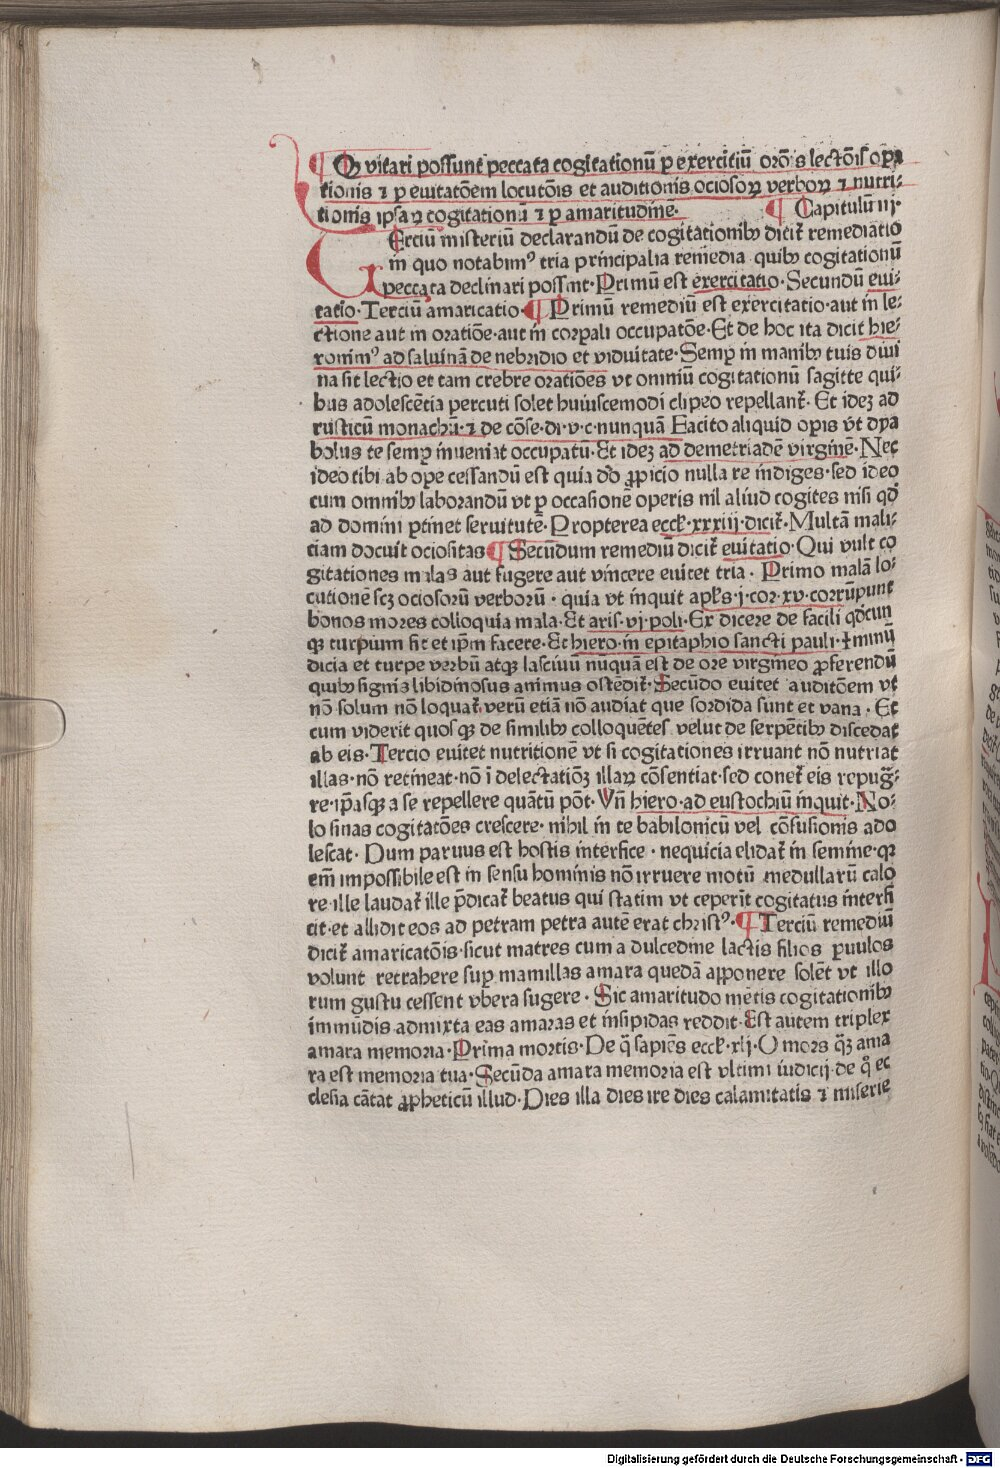 ¶ Q̃ vitari possunt peccata cogitationũ ꝑ exercitiũ orõ̃is lectõis oꝑa
tionis ⁊ ꝑ euitatõem locutõis et auditionis ociosoꝝ verboꝝ ⁊ nutri⸗
tionis ipsaꝝ cogitationũ ⁊ ꝑ amaritudinẽ· ¶ Capitulũ iij·
Terciũ misteriũ declarandũ de cogitationibꝰ dicit̃ remediatio
in quo notabimꝰ tria principalia remedia quibꝰ cogitationũ
peccata declinari possint· Primũ est exercitatio· Secundũ eui⸗
tatio· Terciũ amaricatio· ¶ Primũ remediũ est exercitatio· aut in le⸗
ctione aut in oratiõe· aut in corꝑali occupatõe· Et de hoc ita dicit hie⸗
ronimꝰ ad saluinã de nebridio et viduitate· Semꝑ in manibꝰ tuis diui
na sit lectio et tam crebre oratiões vt omniũ cogitationũ sagitte qui⸗
bus adolescẽtia percuti solet huiuscemodi clipeo repellant̃· Et ideꝫ ad
rusticũ monachũ· ⁊ de cõse· di· v· c· nunquã Facito aliquid oꝑis vt dya
bolus te semꝑ inueniat occupatũ· Et ideꝫ ad demetriadẽ virginẽ· Nec
ideo tibi ab oꝑe cessandũ est quia dõ ꝓpicio nulla re indiges· sed ideo
cum omnibꝰ laborandũ vt ꝑ occasionẽ operis nil aliud cogites nisi qđ
ad domini ꝑtinet seruitutẽ· Propterea eccł· xxxiij· dicit̃· Multã mali⸗
tiam docuit ociositas ¶ Secũdum remediũ dicit̃ euitatio· Qui vult co
gitationes malas aut fugere aut vincere euitet tria· Primo malã lo⸗
cutionẽ scꝫ ociosorũ verborũ· quia vt inquit apl̃s· j· cor· xv· corrũpunt
bonos mores colloquia mala· Et aris· vj· poli· Ex dicere de facili qđcun
qꝫ turpium fit et ip̃m facere· Et hiero· in epitaphio sancti pauli· Iminũ
dicia et turpe verbũ atqꝫ lasciuũ nũquã est de ore virgineo ꝓferendũ
quibꝰ signis libidinosus animus ostẽdit̃· Secũdo euitet auditõem vt
nõ solum nõ loquat̃· verũ etiã nõ audiat que sordida sunt et vana· Et
cum viderit quosqꝫ de similibꝰ colloquẽtes velut de serpẽtibꝰ discedat
ab eis· Tercio euitet nutritionẽ vt si cogitationes irruant nõ nutriat
illas· nõ retineat· nõ ĩ delectatiõꝫ illaꝝ cõsentiat· sed conet̃ eis repug̃⸗
re· ip̃asqꝫ a se repellere quãtũ põt· Vñ hiero· ad eustochiũ inquit· No⸗
lo sinas cogitatões crescere· nihil in te babilonicũ vel cõfusionis ado
lescat· Dum paruus est hostis interfice· nequicia elidat̃ in semine· qꝛ
em̃ impossibile est in sensu hominis nõ irruere motũ medullarũ calo
re· ille laudat̃ ille p̃dicat̃ beatus qui statim vt ceperĩt cogitatus interfi
cit· et allidit eos ad petram petra autẽ erat christꝰ· ¶ Terciũ remediũ
dicit̃ amaricatõis· sicut matres cum a dulcedine lactis filios ꝑuulos
volunt retrahere suꝑ mamillas amara quedã apponere solẽt vt illo
rum gustu cessent vbera sugere· Sic amaritudo mẽtis cogitationibꝰ
immũdis admixta eas amaras et insipidas reddit· Est autem triplex
amara memoria· Prima mortis· De q̃ sapiẽs eccł· xlj· O mors q̃ꝫ ama
ra est memoria tua· Secũda amara memoria est vltimi iudicij· de q̊ ec
clesia cãtat ꝓpheticũ illud· Dies illa dies ire dies calamitatis ⁊ miserie
Digitalisierung gefördert durch die Deutsche Forschungsgemeinschaft - DFG